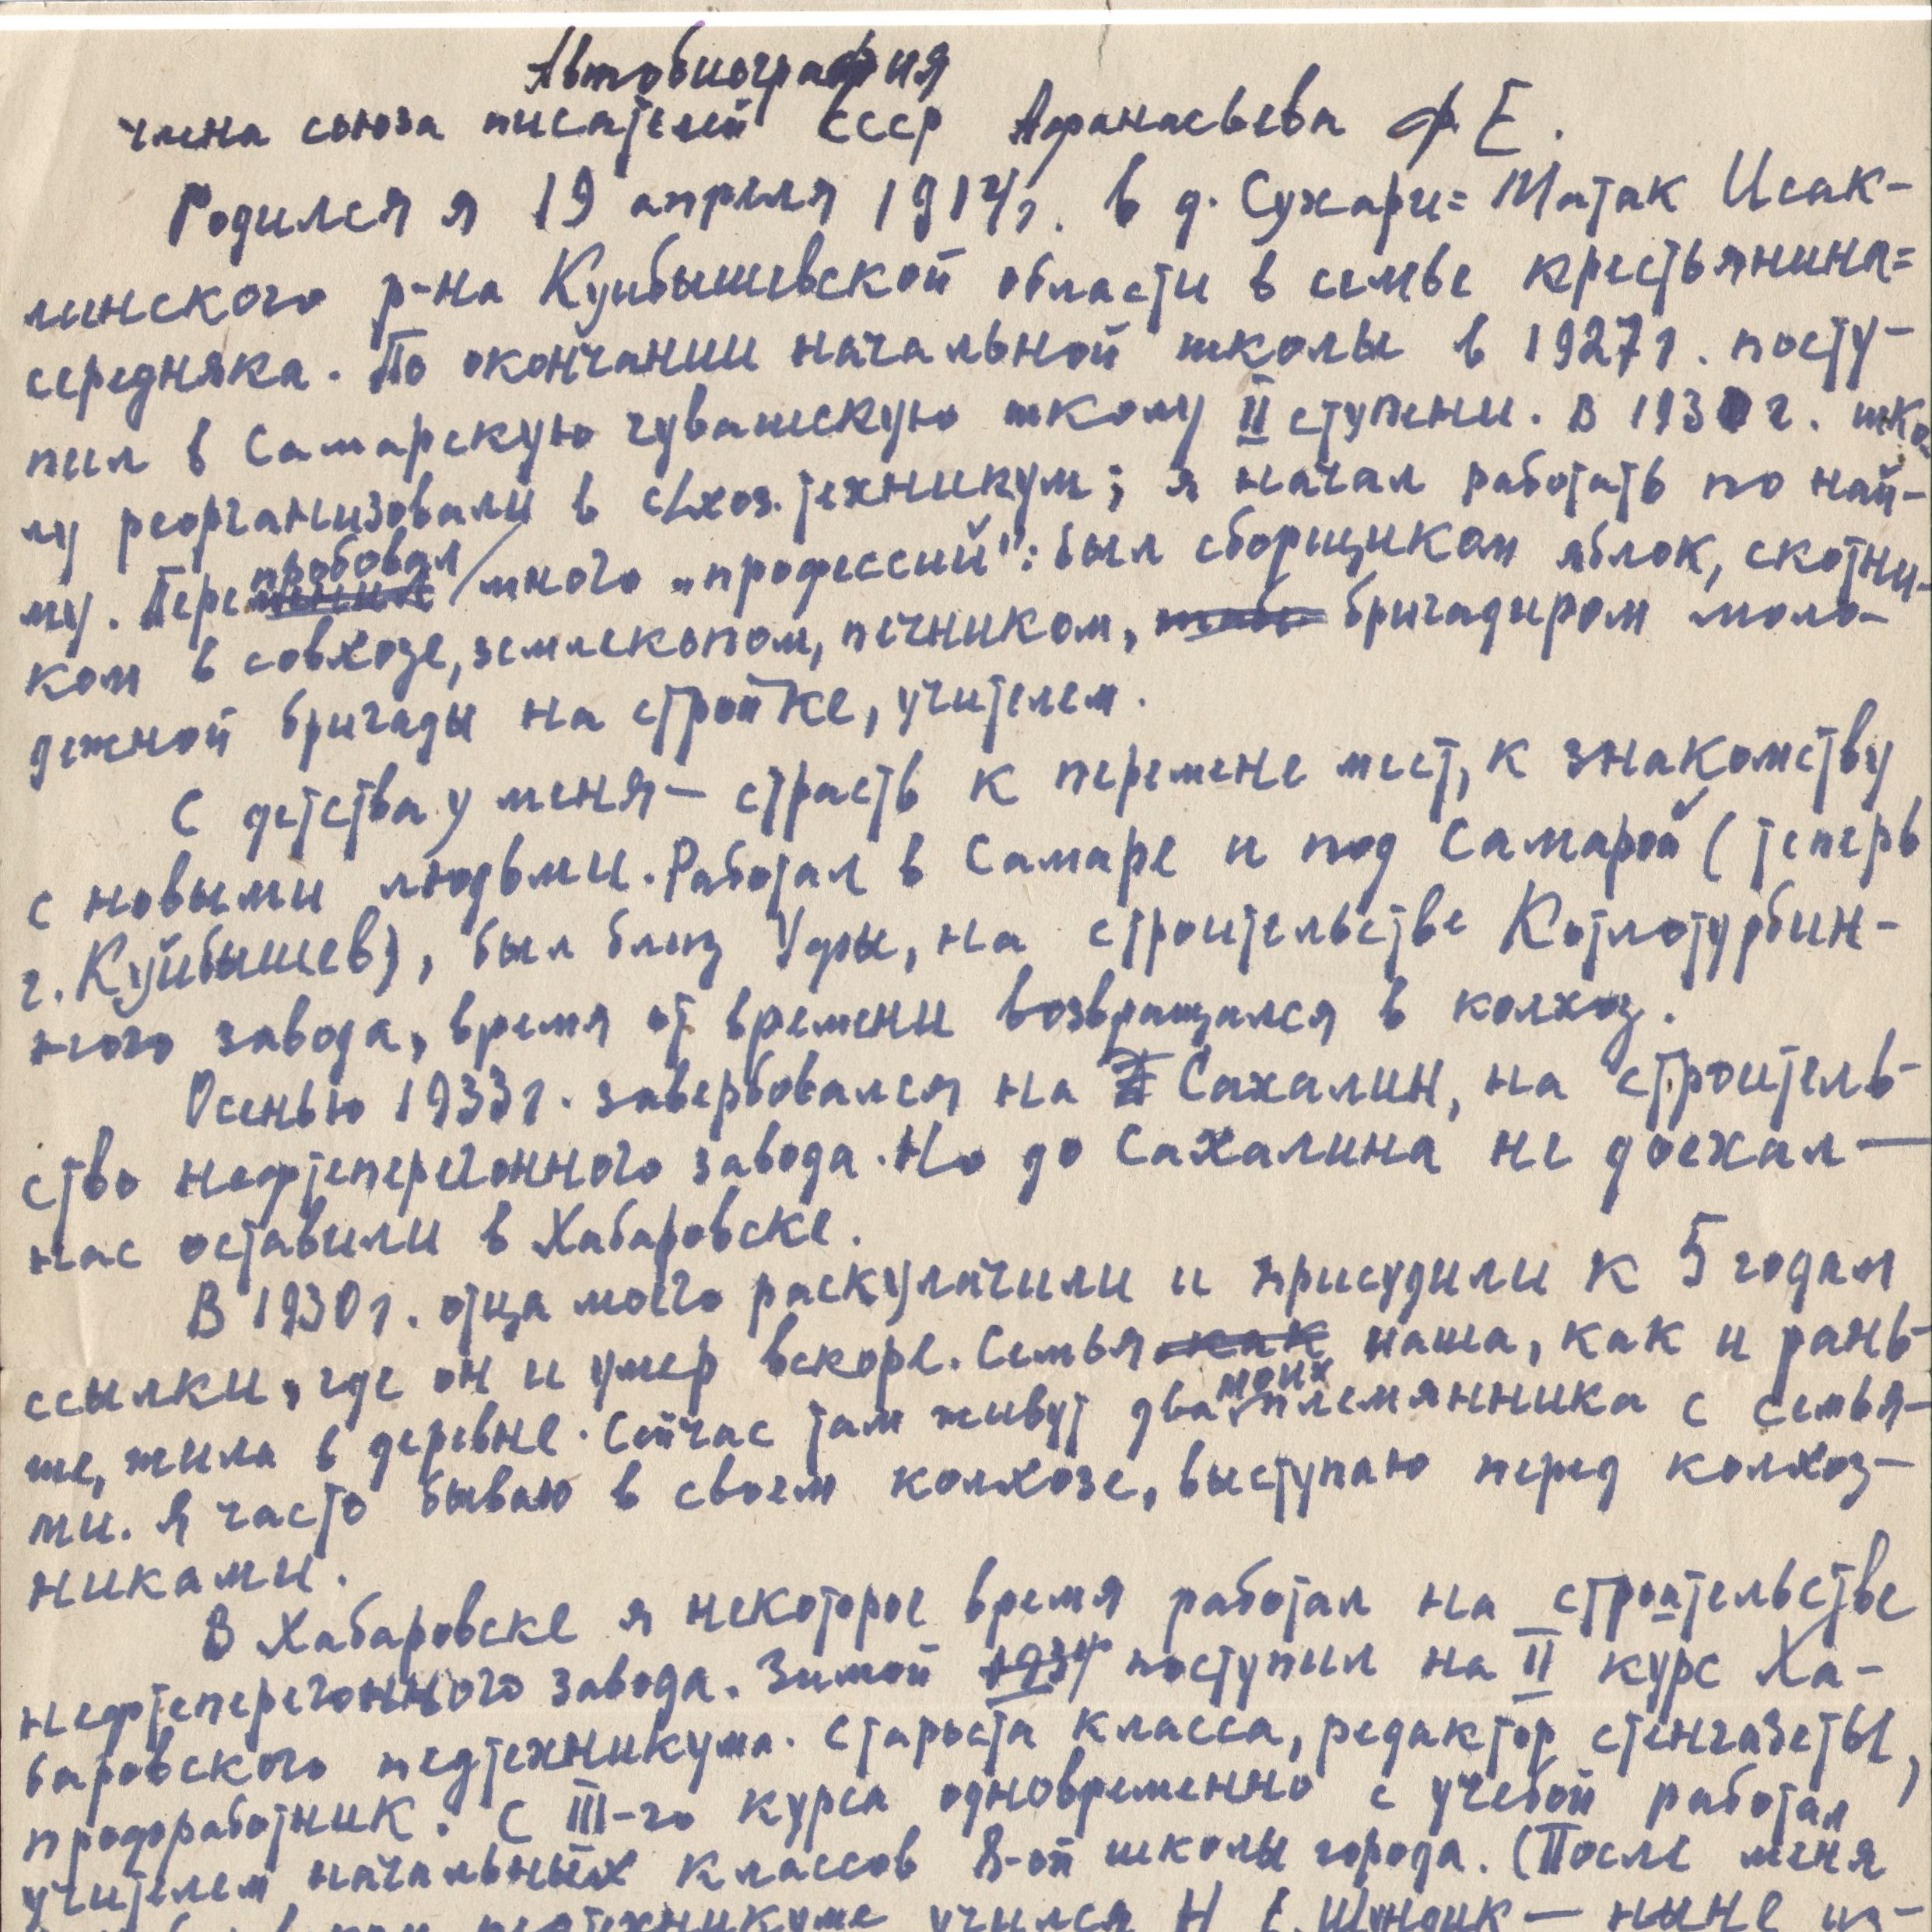 Автобиография
члена союза писателей СССР Афанасьева Ф. Е.
Родился я 19 апреля 1914 г. в д. Сухари=Матак Исак-
линского р-на Куибышевской области в семье крестьянина=
середняка. По окончании начальной школы в 1927 г. посту-
пил в Самарскую чувашскую школу II ступени. В 1930 г. шко-
лу реорганизовали в с/хоз. техникум; я начал работать по най-
му. Перепробовал много „профессий": был сборщиком яблок, скотни-
ком в совхозе, землекопом, печником, бригадиром моло-
дежной бригады на стройке, учителем.
С детства у меня — страсть к перемене мест, к знакомству
с новыми людьми. Работал в Самаре и под Самарой (теперь
г. Куйбышев), был близ Уфы, на строительстве Котлотурбин-
ного завода, время от времени возвращался в колхоз.
Осенью 1933 г. завербовался на Сахалин, на строитель-
ство нефтеперегонного завода. Но до Сахалина не доехал —
нас оставили в Хабаровске.
В 1930 г. отца моего раскулачили и присудили к 5 годам
ссылки, где он и умер вскоре. Семья как наша, как и рань-
ше, жила в деревне. Сейчас там живут два моих племянника с семья-
ми. Я часто бываю в своем колхозе, выступаю перед колхоз-
никами.
В Хабаровске я некоторое время работал на строительстве
нефтеперегонного завода. Зимой 1934 поступил на II курс Ха-
баровского педтехникума. Староста класса, редактор стенгазеты,
профработник. С III-го курса одновременно с учебой работал
учителем начальных классов 8-ой школы города. (После меня
педтехникуме учился Н. Е. Шундик — ныне из-